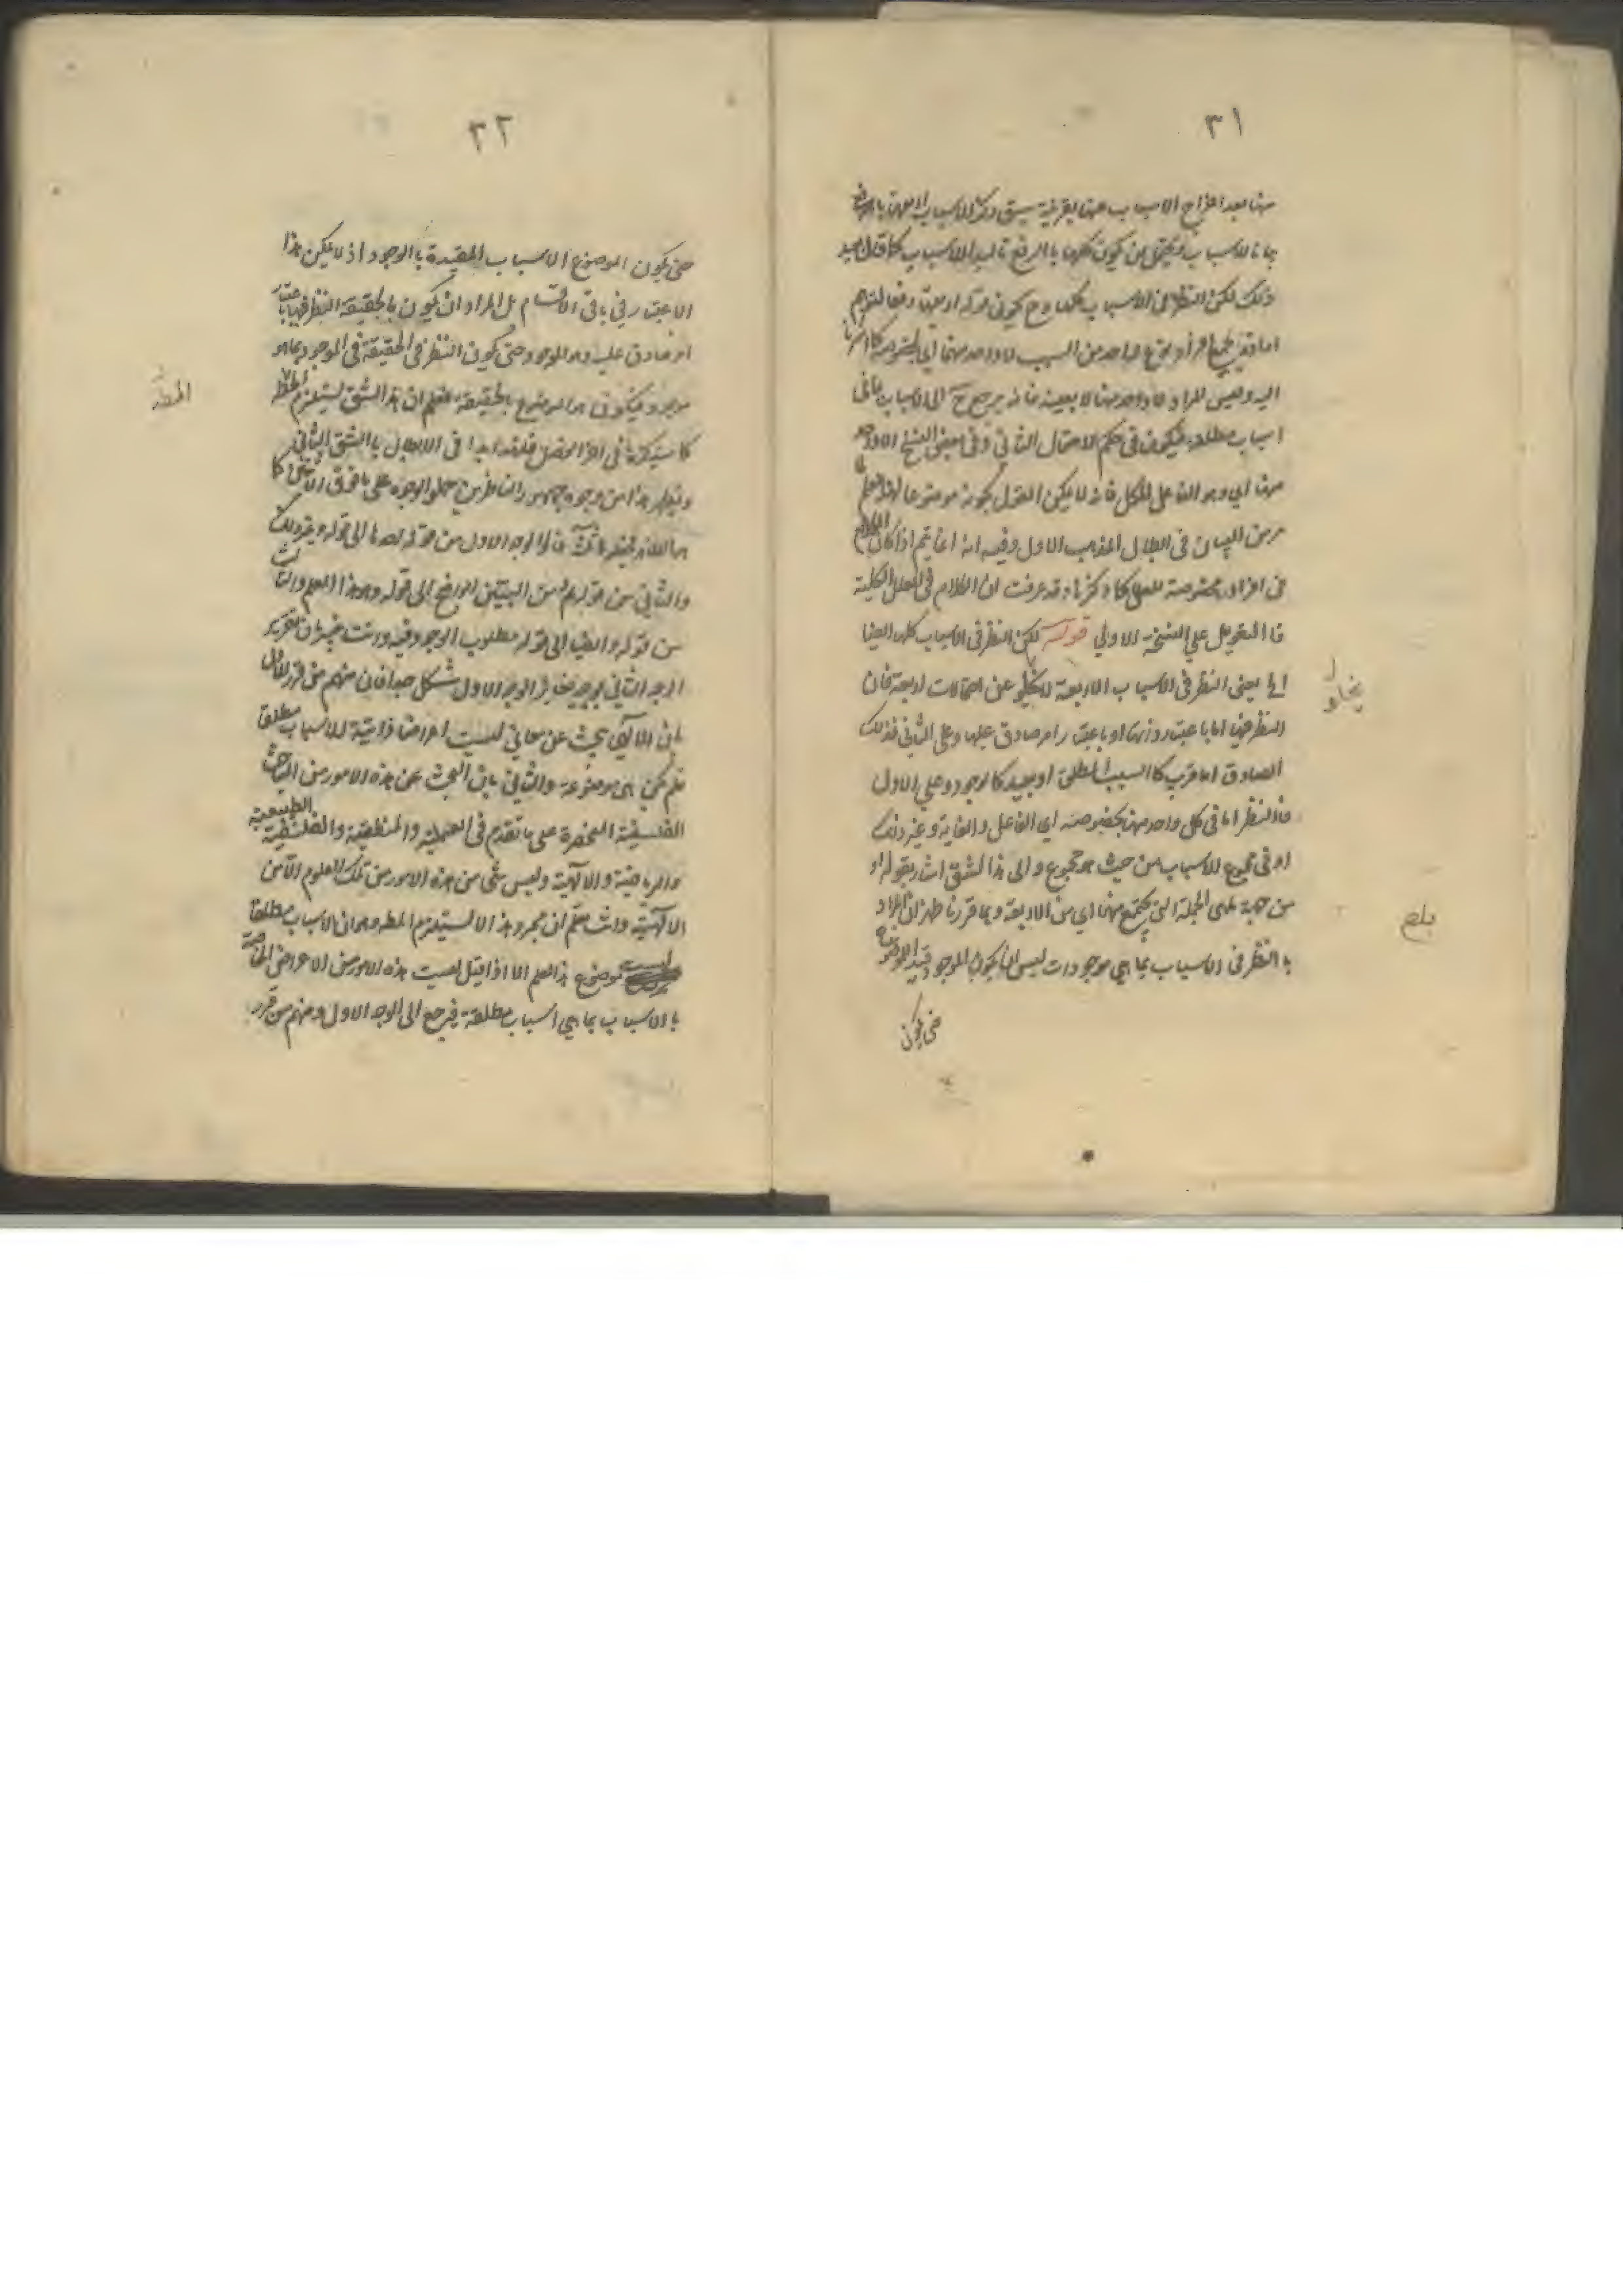 ٣١
منها بعد اخراج الاسباب عنها بقرينة سبق ذكر الاسباب
بانا لاسباب ويحتمل ان يكون كلها بالرفع تاكيد الاسباب كما قال بعيد
ذلك لكن النظر في الاسباب كلها وح يكون قوله اربعتها دفعا لتوهم
من السبب لا واحد منها
اليه وليس المراد لا واحد منها لا بعينه فانه يرجع ح الى الاسباب بما هي
اسباب مطلقة فيكون في حكم الاحتمال الثاني وفي بعض النسخ الا واحد
منها اي وهو الفاعل للكل فانه لا يمكن القول بكونه موضوعا لهذا العلم
من البيان في ابطال المذهب الاول وفيه انه انما يتم اذا كان الكلام
في افراد مخصوصة للعلل كما ذكرنا وقد عرفت ان الكلام في العلل الكلية
فالتعويل على النسخة الاولى قوله لكن النظر في الاسباب كلها ايضا
الخ يعني النظر في الاسباب الاربعة لا يخلو عن احتمالات اربعة فان
النظر فيها اما باعتبار ذاتها او باعتبار امر صادق عليها وعلى الثاني فذلك
الصادق اما قريب كالسبب المطلق او بعيد كالوجود وعلى الاول
فالنظر اما في كل واحد منها بخصوصه اي الفاعل والغاية وغير ذلك
او في مجموع الاسباب من حيث هو مجموع والى هذا الشق اشار بقوله او
من جهة ما هي الجملة التي تجتمع منها اي من الاربعة وبما قررنا ظهر ان المراد
بالنظر في الاسباب بما هي موجودات ليس ان يكون الموجود قيد الموضوع
حتى يكون
يخلو
بلغ
٣٢
حتى يكون الموضوع الاسباب المقيدة بالوجود اذ لا يمكن هذا
الاعتبار في باقي الاقسام بل المراد ان يكون بالحقيقة النظر فيها باعتبار
امر صادق عليه وهو الموجود حتى يكون النظر في الحقيقة في الموجود بما هو
موجود فيكون هو الموضوع بالحقيقة فعلم ان هذا الشق يستلزم المط
كما سيذكره في اخر الفصل فلذا بدا في الابطال بالشق الثاني
ويظهر هذا من وجوه جمهور الناظرين حملوا الوجوه على ما فوق الاثنين كما
والوجه الاول من قوله احدها الى قوله وغير ذلك
والثاني من قوله ثم من البين الواضح الى قوله وهو هذا العلم والثالث
من قوله وايضا الى قوله مطلوب الوجود فيه وانت خبير بان تقرير
الوجه الثاني بوجه يغاير الوجه الاول مشكل جدا فان منهم من قرر الاول
بان الالهي يبحث عن معاني ليست اعراضا ذاتية للاسباب مطلقا
فلم تكن هي موضوعة والثاني بان البحث عن هذه الامور من المباحث
الفلسفية المنحصرة على ما تقدم في العملية والمنطقية والفلسفية الطبيعية
والرياضية والالهية وليس شيء من هذه الامور من تلك العلوم الا من
الالهية وانت تعلم ان مجرد هذا لا يستلزم المط وهو ان الاسباب مطلقا
ليست موضوع هذا العلم الا اذا قيل ليست هذه الامور من الاعراض الخاصة
بالاسباب بما هي اسباب مطلقة فيرجع الى الوجه الاول ومنهم من قرر
المط